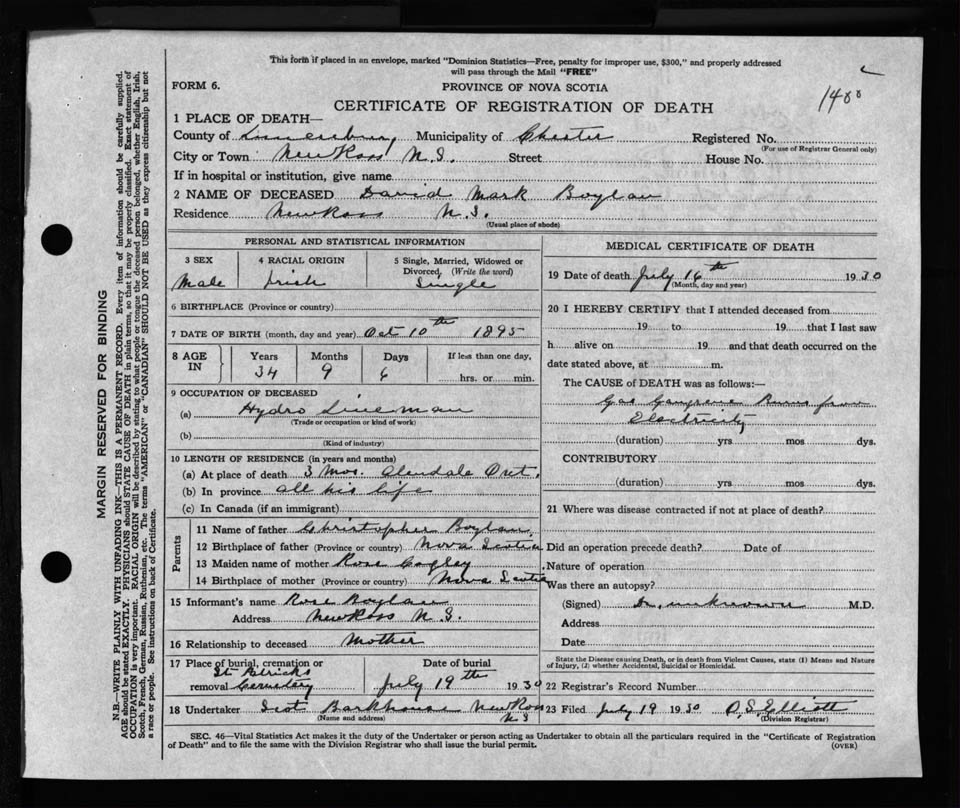 This form if placed in an envelope, marked "Dominion Statistics—Free, penalty for improper use, $300," and properly addressed
will pass through the Mail "FREE"
FORM 6.
PROVINCE OF NOVA SCOTIA
CERTIFICATE OF REGISTRATION OF DEATH
1 PLACE OF DEATH—
County of Lunenburg Municipality of Chester Registered No.
(For use of Registrar General only)
City or Town New Ross N.S. Street House No.
If in hospital or institution, give name
2 NAME OF DECEASED David Mark Boylan
Residence New Ross N.S.
(Usual place of abode)
PERSONAL AND STATISTICAL INFORMATION
3 SEX 4 RACIAL ORIGIN 5 Single, Married, Widowed or
Divorced, (Write the word)
Male Irish Single
6 BIRTHPLACE (Province or country)
7 DATE OF BIRTH (month, day and year) Oct 10th 1895
8 AGE IN Years Months Days If less than one day,
34 9 6 hrs. or min.
9 OCCUPATION OF DECEASED
(a) Hydro Line man
(Trade or occupation or kind of work)
(b)
(Kind of industry)
10 LENGTH OF RESIDENCE (in years and months)
(a) At place of death 3 Mos. Alendale Ont.
(b) In province all his life
(c) In Canada (if an immigrant)
Parents
11 Name of father Christopher Boylan
12 Birthplace of father (Province or country) Nova Scotia
13 Maiden name of mother Rose
14 Birthplace of mother (Province or country) Nova Scotia
15 Informant's name Rose Boylan
Address New Ross N.S.
16 Relationship to deceased Mother
17 Place of burial, cremation or Date of burial
St Patricks
removal Cemetery July 19th 1930
18 Undertaker Scott Barkhouse New Ross
(Name and address) N S
MEDICAL CERTIFICATE OF DEATH
19 Date of death July 16th 1930
(Month, day and year)
20 I HEREBY CERTIFY that I attended deceased from
19 to 19 that I last saw
h alive on 19 and that death occurred on the
date stated above, at m.
The CAUSE of DEATH was as follows:—
Gas Gangrene Burns from
Electricity
(duration) yrs mos dys.
CONTRIBUTORY
(duration) yrs mos dys.
21 Where was disease contracted if not at place of death?
Did an operation precede death? Date of
Nature of operation
Was there an autopsy?
(Signed) Dr. unknown M.D.
Address
Date
State the Disease causing Death, or in death from Violent Causes, state (1) Means and Nature
of Injury, (2) whether Accidental, Suicidal or Homicidal.
22 Registrar's Record Number
23 Filed July 19 1930 O.S. Elliott
(Division Registrar)
SEC. 46—Vital Statistics Act makes it the duty of the Undertaker or person acting as Undertaker to obtain all the particulars required in the "Certificate of Registration
of Death" and to file the same with the Division Registrar who shall issue the burial permit.
(OVER)
MARGIN RESERVED FOR BINDING
N.B.—WRITE PLAINLY WITH UNFADING INK—THIS IS A PERMANENT RECORD. Every item of information should be carefully supplied.
AGE should be stated EXACTLY. PHYSICIANS should STATE CAUSE OF DEATH in plain terms, so that it may be properly classified. Exact statement of
OCCUPATION is very important. RACIAL ORIGIN will be described by stating to what people or tongue the deceased person belonged, whether English, Irish,
Scotch, French, German, Russian, Ruthenian, etc. The terms "AMERICAN" or "CANADIAN" SHOULD NOT BE USED as they express citizenship but not
a race or people. See instructions on back of Certificate.